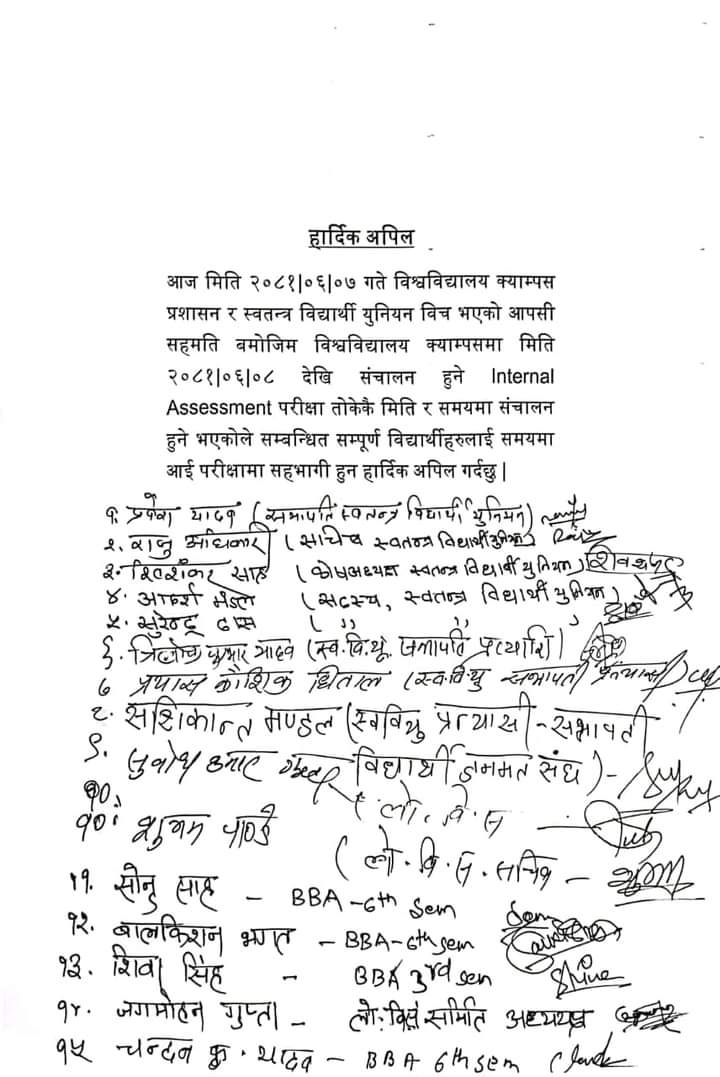 हार्दिक अपिल
आज मिति २०८१|०६|०७ गते विश्वविद्यालय क्याम्पस
प्रशासन र स्वतन्त्र विद्यार्थी युनियन विच भएको आपसी
सहमति बमोजिम विश्वविद्यालय क्याम्पसमा मिति
२०८१|०६|०८ देखि संचालन हुने Internal
Assessment परीक्षा तोकेकै मिति र समयमा संचालन
हुने भएकोले सम्बन्धित सम्पूर्ण विद्यार्थीहरुलाई समयमा
आई परीक्षामा सहभागी हुन हार्दिक अपिल गर्दछु|
१. यादव (सभापति स्वतन्त्र विद्यार्थी युनियन)
२. राजु अधिकारी (सचिव स्वतन्त्र विद्यार्थी युनियन)
३. शिवशंकर साह (कोषअध्यक्ष स्वतन्त्र विद्यार्थी युनियन)
४. आदर्श मंडल (सदस्य, स्वतन्त्र विद्यार्थी युनियन)
५. सुरेन्द्र दास ( ,, ,, )
६. यादव (स्व.वि.यू. सभापति प्रत्यासी)
७ प्रयास कौशिक धिताल (स्व.वि.यु सभापती
८. सशिकान्त मण्डल (स्ववियु प्रत्यासी - सभापती
९. सुवोध कुमार विद्यार्थी जनमत संघ) -
१०. (लो. वि. स
१०: शुभम पाण्डे
(लो. वि. स. सचिव -
११. सोनु साह - BBA - 6th sem
१२. बालकिशन भगत - BBA - 6th sem
१३. शिवा सिंह - BBA 3rd sem
१४. जगमोहन गुप्ता - समिति
१५ चन्दन कु. यादव - BBA 6th sem